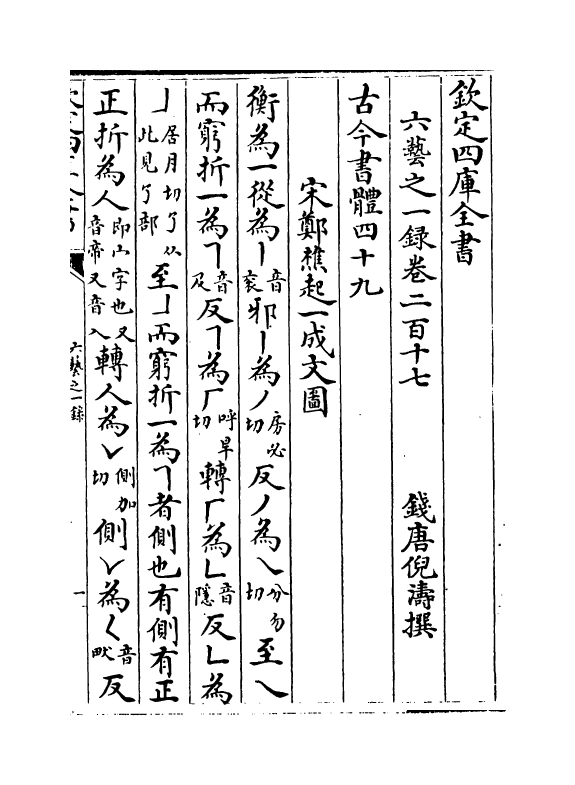 欽定四庫全書
六藝之一録卷二百十七
錢唐倪濤撰
古今書體四十九
宋鄭樵起一成文圖
衡為一從為丨音衮邪丨為丿房必切反丿為乀分勿切至乀
而窮折一為㇕音及反㇕為厂呼旱切轉厂為乚音隱反乚為
亅居月切了从此見了部至亅而窮折一為㇕者側也有側有正
正折為人即亼字也又音帝又音入轉人為㇙側加切側㇙為く音畎反
六藝之一録
一